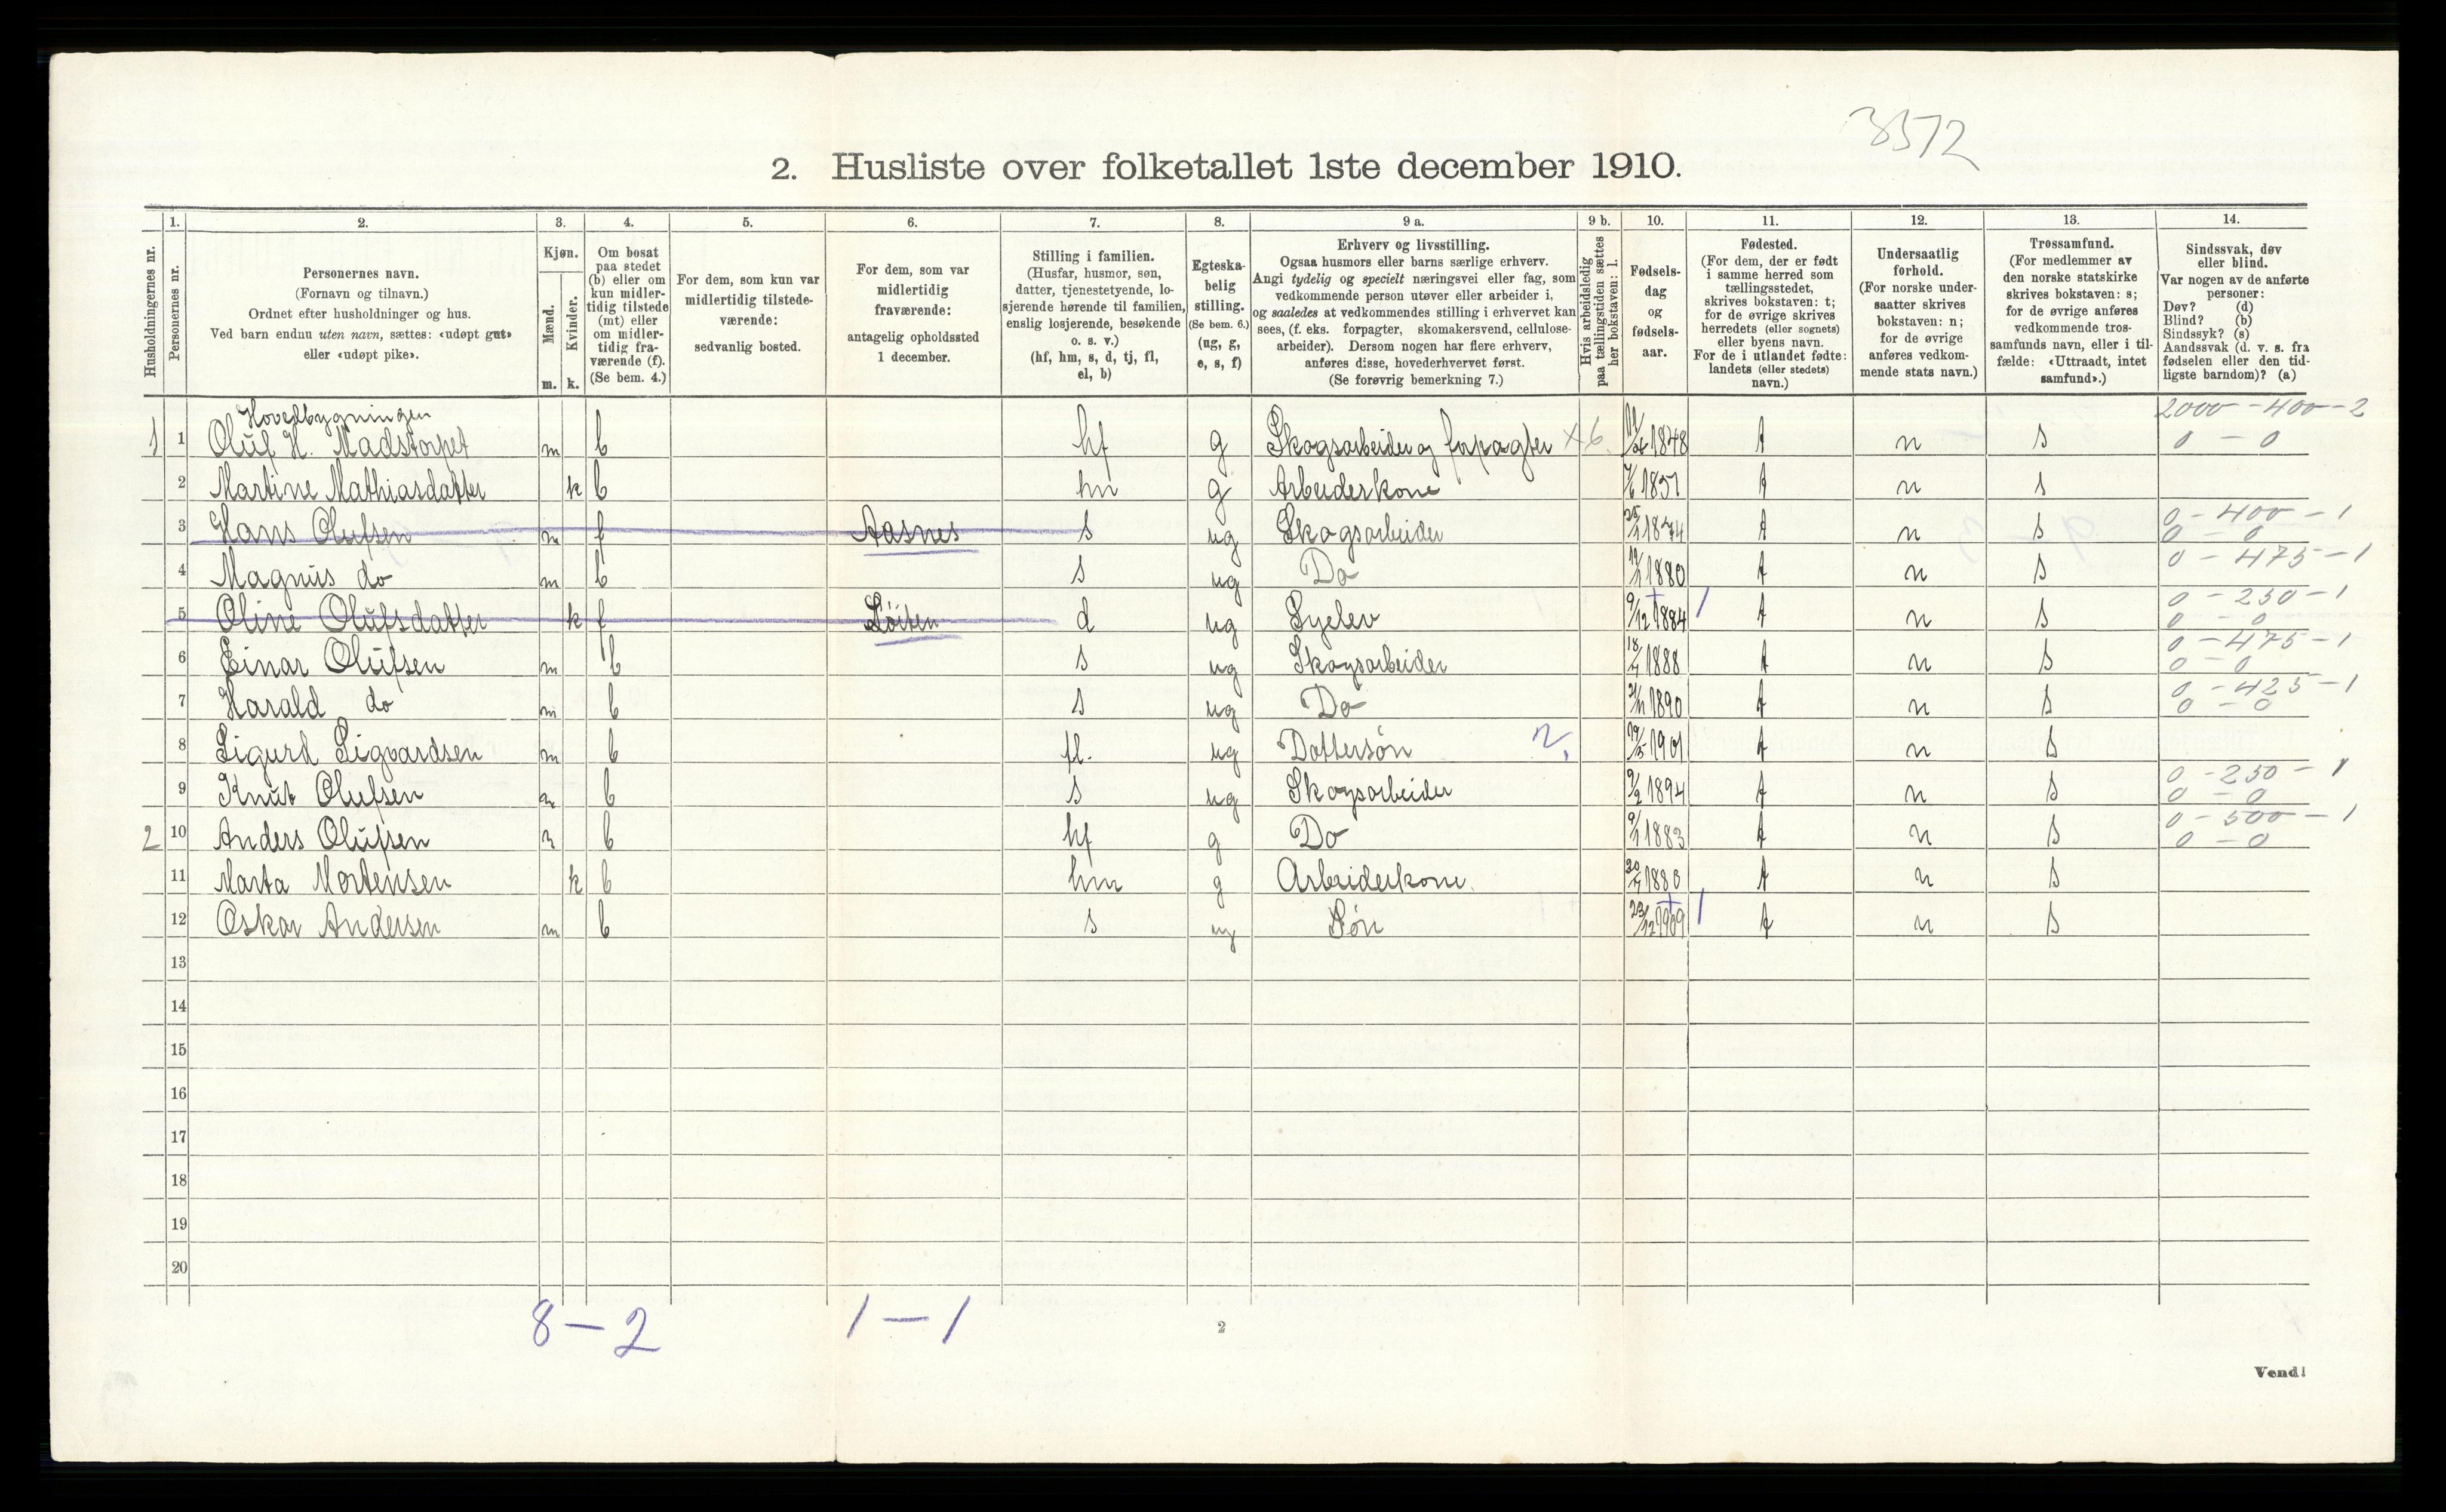 3572
2. Husliste over folketallet 1ste december 1910.
Husholdningernes nr.
1. Personernes nr.
2. Personernes navn.
(Fornavn og tilnavn.)
Ordnet efter husholdninger og hus.
Ved barn endnu uten navn, sættes: «udøpt gut»
eller «udøpt pike».
3. Kjøn.
Mænd. Kvinder.
m. k.
4. Om bosat
paa stedet
(b) eller om
kun midler-
tidig tilstede
(mt) eller
om midler-
tidig fra-
værende (f).
(Se bem. 4.)
5. For dem, som kun var
midlertidig tilstede-
værende:
sedvanlig bosted.
6. For dem, som var
midlertidig
fraværende:
antagelig opholdssted
1 december.
7. Stilling i familien.
(Husfar, husmor, søn,
datter, tjenestetyende, lo-
sjerende hørende til familien,
enslig losjerende, besøkende
o. s. v.)
(hf, hm, s, d, tj, fl,
el, b)
8. Egteska-
belig
stilling.
(Se bem. 6.)
(ug, g,
e, s, f)
9 a. Erhverv og livsstilling.
Ogsaa husmors eller barns særlige erhverv.
Angi tydelig og specielt næringsvei eller fag, som
vedkommende person utøver eller arbeider i,
og saaledes at vedkommendes stilling i erhvervet kan
sees, (f. eks. forpagter, skomakersvend, cellulose-
arbeider). Dersom nogen har flere erhverv,
anføres disse, hovederhvervet først.
(Se forøvrig bemerkning 7.)
9 b. Hvis arbeidsledig
paa tællingstiden sættes
her bokstaven: l.
10. Fødsels-
dag
og
fødsels-
aar.
11. Fødested.
(For dem, der er født
i samme herred som
tællingsstedet,
skrives bokstaven: t;
for de øvrige skrives
herredets (eller sognets)
eller byens navn.
For de i utlandet fødte:
landets (eller stedets)
navn.)
12. Undersaatlig
forhold.
(For norske under-
saatter skrives
bokstaven: n;
for de øvrige
anføres vedkom-
mende stats navn.)
13. Trossamfund.
(For medlemmer av
den norske statskirke
skrives bokstaven: s;
for de øvrige anføres
vedkommende tros-
samfunds navn, eller i til-
fælde: «Uttraadt, intet
samfund».)
14. Sindssvak, døv
eller blind.
Var nogen av de anførte
personer:
Døv? (d)
Blind? (b)
Sindssyk? (s)
Aandssvak (d. v. s. fra
fødselen eller den tid-
ligste barndom)? (a)
Hovedbygningen 2000 - 400 - 2
1 1 Oluf H. Madstorpet m b hf g Skogsarbeider og forpagter x 6 1848 t n s 0 - 0
2 Martine Mathiasdatter k b hm g Arbeiderkone 1851 t n s
3 Hans Olufsen m f Aasnes s ug Skogsarbeider 1874 t n s 0 - 400 - 1 0 - 0
4 Magnus do m b s ug Do 1880 t n s 0 - 475 - 1
5 Oline Olufsdatter k f Löiten d ug Syelev 9/12 1884 t n s 0 - 250 - 1 0 - 0
6 Einar Olufsen m b s ug Skogsarbeider 1888 t n s 0 - 475 - 1 0 - 0
7 Harald do m b s ug Do 21/11 1890 t n s 0 - 425 - 1 0 - 0
8 Sigurd Sigvardsen m b fl. ug Dattersön 19/5 1901 t n s
9 Knut Olufsen m b s ug Skogsarbeider 9/2 1894 t n s 0 - 250 - 1 0 - 0
2 10 Anders Olufsen m b hf g Do 9/1 1883 t n s 0 - 500 - 1 0 - 0
11 Marta Mortensen k b hm g Arbeiderkone. 1880 t n s
12 Oskar Andersen m b s ug Sön 23/12 1909 t n s
13
14
15
16
17
18
19
20
8 - 2 1 - 1
2
Vend!